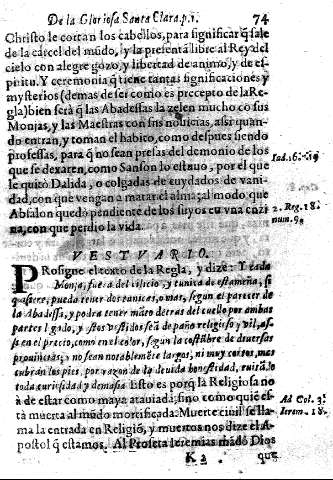 De la Gloriosa Santa Clara. p. 1. 74
Christo le cortan los cabellos, para significar q̃ sale
de la carcel del mũdo, y la presentã libre al Rey del
cielo con alegre gozo, y libertad de animo, y de es-
piritu. Y ceremonia q̃ tiene tantas significaciones y
mysterios (demas de ser como es precepto de la Re-
gla) bien serà q̃ las Abadessas la zelen mucho cõ sus
Monjas, y las Maestras con sus nouicias, assi quan-
do entran, y toman el habito, como despues siendo
professas, para q̃ no sean presas del demonio de los
que se dexaren, como Sanson lo estuuo, por el que
le quitò Dalida, o colgadas de cuydados de vani-
dad, con que vengan a matar el alma; al modo que
Absalon quedò pendiente de los suyos en vna enzi-
na, con que perdio la vida.
Iud. 16. 19
2. Reg. 18.
num. 9.
VESTVARIO.
Prosigue el texto de la Regla, y dize: Y cada
Monja, fuera del cilicio, y tunica de estameña, si
quisiere, pueda tener dos tunicas, o mas, segun el parecer de
la Abadessa, y podrà tener mãto detras del cuello por ambas
partes ligado, y estos vestidos seã de paño religioso y vil, as-
si en el precio, como en el color, segun la costũbre de diuersas
prouincias; y no sean notablemẽte largos, ni muy cortos, mas
cubrãn los pies, por razon de la deuida honestidad, euitãdo
toda curiosidad y demasia. Esto es porq̃ la Religiosa no
à de estar como maya atauiada; sino como quiẽ es-
tà muerta al mũdo mortificada. Muerte ciuil se lla-
ma la entrada en Religiõ, y muertos nos dize el A-
postol q̃ estamos. Al Profeta Ieremias mãdò Dios
Ad Col. 3.
Ierem. 18.
K 2 que